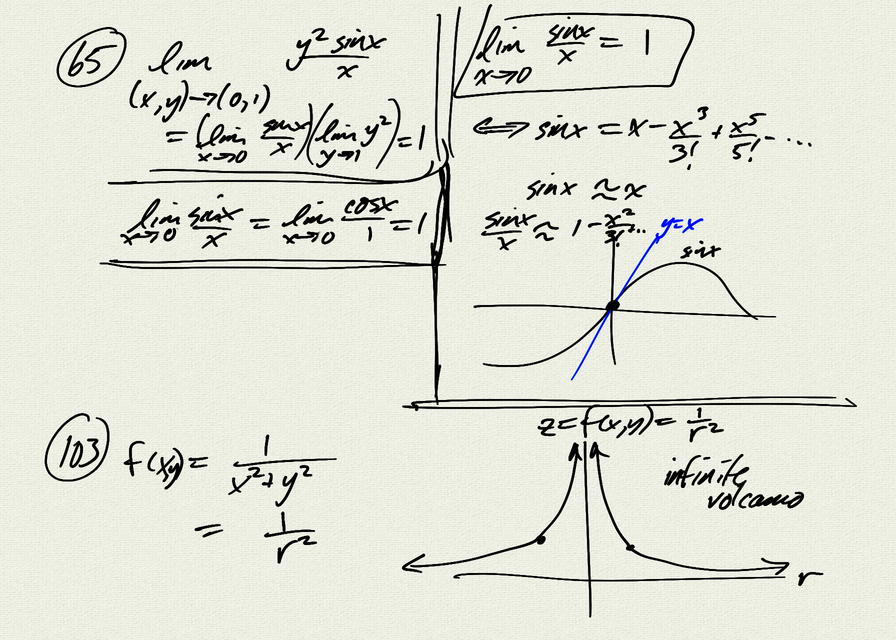 65 lim y² sinx / x
(x,y)→(0,1)
= (lim x→0 sinx/x)(lim y→1 y²) = 1
lim x→0 sinx/x = lim x→0 cosx/1 = 1
lim x→0 sinx/x = 1
⟺ sinx = x - x³/3! + x⁵/5! - ....
sinx ≈ x
sinx/x ≈ 1 - x²/3! ...
y=x
sinx
103 f(x,y) = 1/(x²+y²)
= 1/r²
z = f(x,y) = 1/r²
infinite
volcano
r